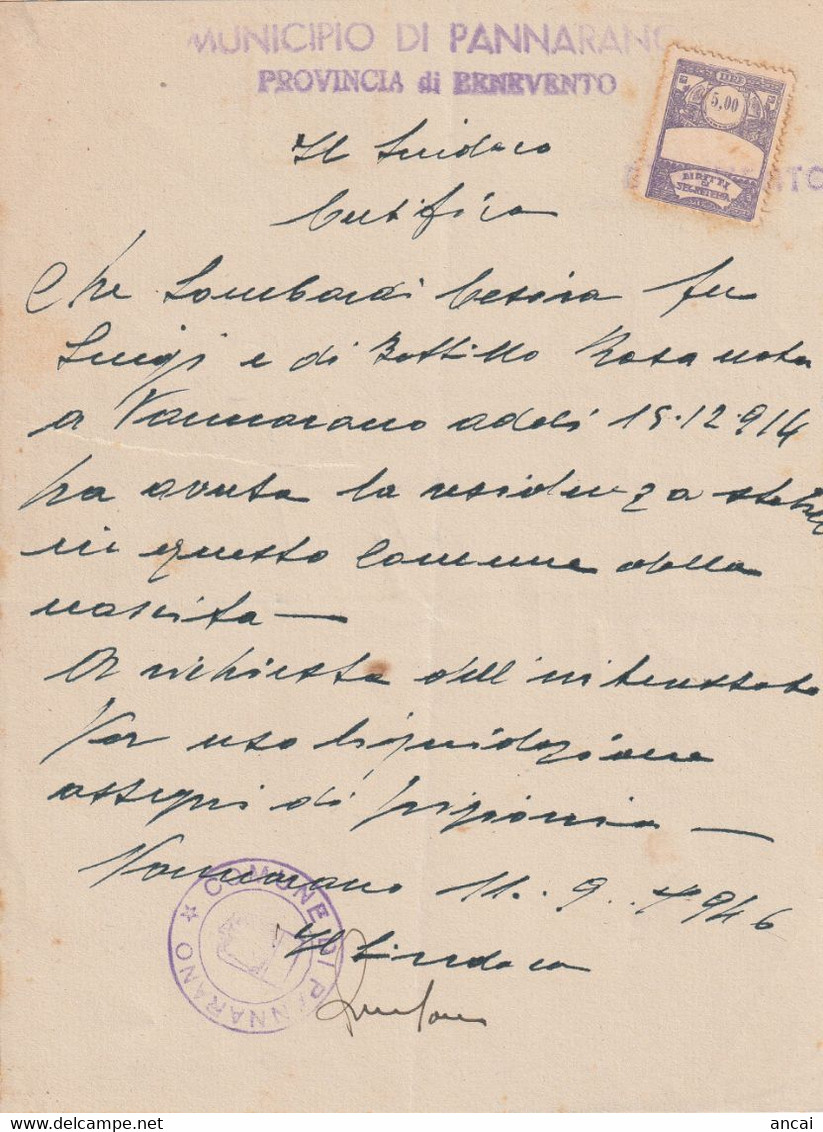 MUNICIPIO DI PANNARANO
PROVINCIA di BENEVENTO
LIRE
5,00
DIRITTI
DI
SEGRETERIA
TO
Il Sindaco
Certifica
Che Lombardi Cesira fu
Luigi e di Bottillo Rosa nata
a Pannarano addì 15.12.914
ha avuta la residenza stabile
in questo Comune dalla
nascita —
A richiesta dell'interessata
Per uso liquidazione
assegni di prigionia —
Pannarano 11. 9. 1946
Il Sindaco
COMUNE DI PANNARANO
delcampe.net
ancai